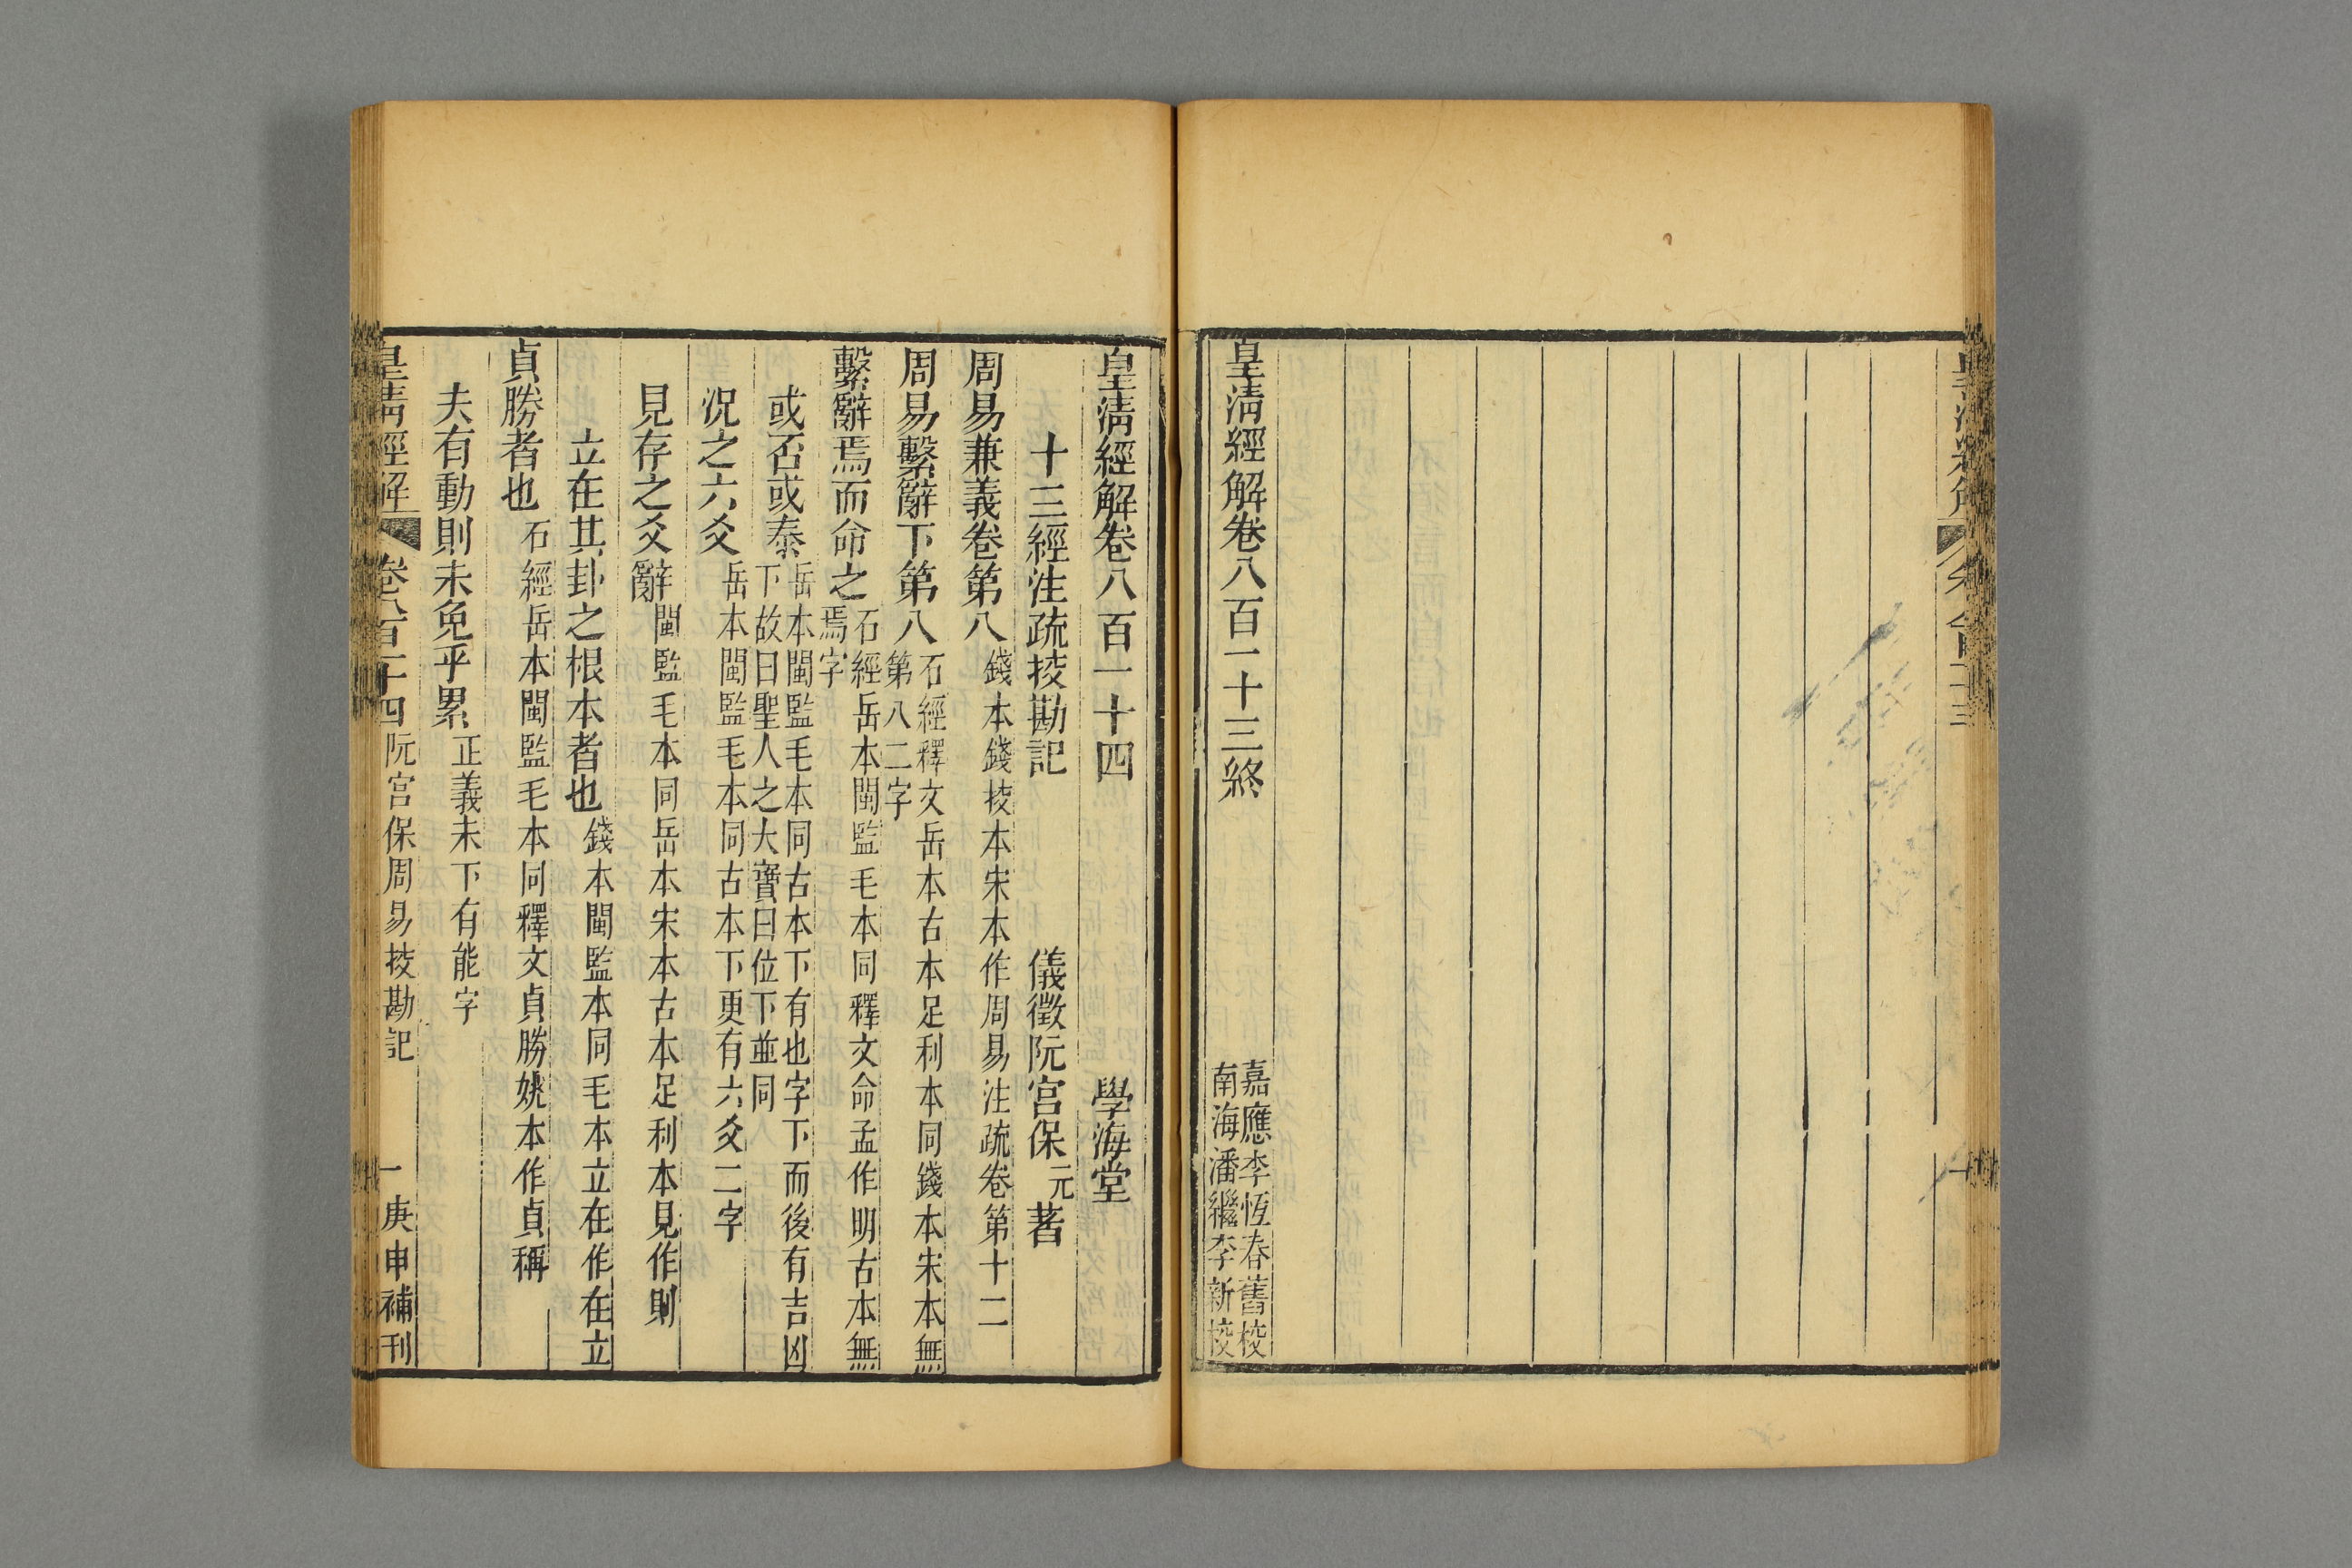 皇清經解卷八百一十三終
嘉應李恆春舊挍
南海潘繼李新挍
皇清經解卷八百一十四
學海堂
十三經注疏挍勘記
儀徵阮宮保元著
周易兼義卷第八錢本錢挍本宋本作周易注疏卷第十二
周易繫辭下第八石經釋文岳本古本足利本同錢本宋本無第八二字
繫辭焉而命之石經岳本閩監毛本同釋文命孟作明古本無焉字
或否或泰岳本閩監毛本同古本下有也字下而後有吉凶下故曰聖人之大寶曰位下並同
況之六爻岳本閩監毛本同古本下更有六爻二字
見存之爻辭閩監毛本同岳本宋本古本足利本見作則
立在其卦之根本者也錢本閩監本同毛本立在作在立
貞勝者也石經岳本閩監毛本同釋文貞勝姚本作貞稱
夫有動則未免乎累正義未下有能字
皇清經解
卷八百一十四
阮宮保周易挍勘記
一
庚申補刊